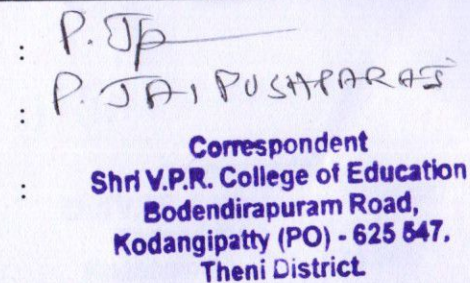 : P. Jp
: P. JAI PUSHPARAJ
Correspondent
: Shri V.P.R. College of Education
Bodendirapuram Road,
Kodangipatty (PO) - 625 547.
Theni District.